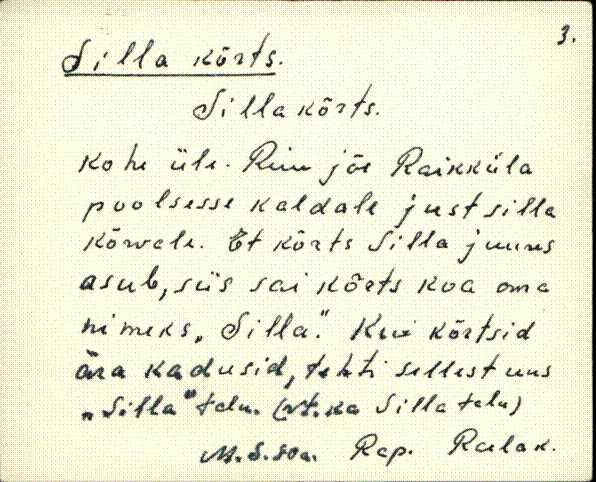 3.
Silla kõrts.
Silla kõrts.
kohe üle. Rinu jõe Raikküla
poolsesse kaldale just silla
kõrwale. Et kõrts Silla juures
asub, siis sai kõrts koa oma
nimeks „Silla”. Kui kõrtsid
ära kadusid, tehti sellest uus
„Silla” talu. (vt. ka Silla talu)
M.S.soa. Rap.